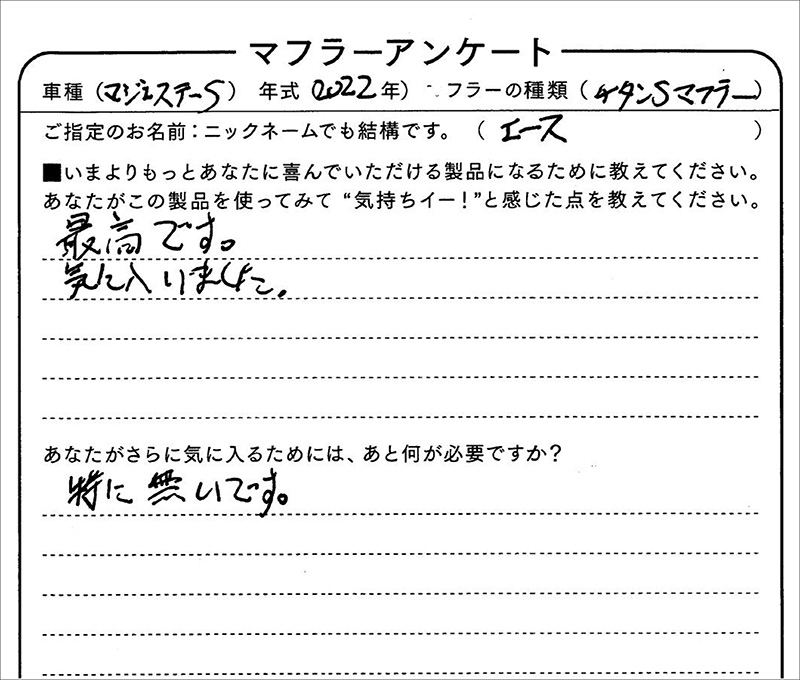 マフラーアンケート
車種(マジェステーS) 年式 2022年) フラーの種類(チタンSマフラー)
ご指定のお名前:ニックネームでも結構です。(エース)
■いまよりもっとあなたに喜んでいただける製品になるために教えてください。
あなたがこの製品を使ってみて“気持ちイー!”と感じた点を教えてください。
最高です。
気に入りました。
あなたがさらに気に入るためには、あと何が必要ですか?
特に無いです。